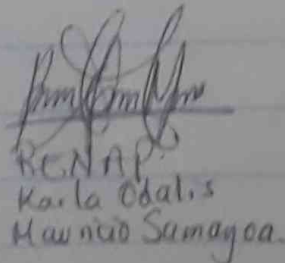 RENAP.
Karla Odalis
Mauricio Samayoa.